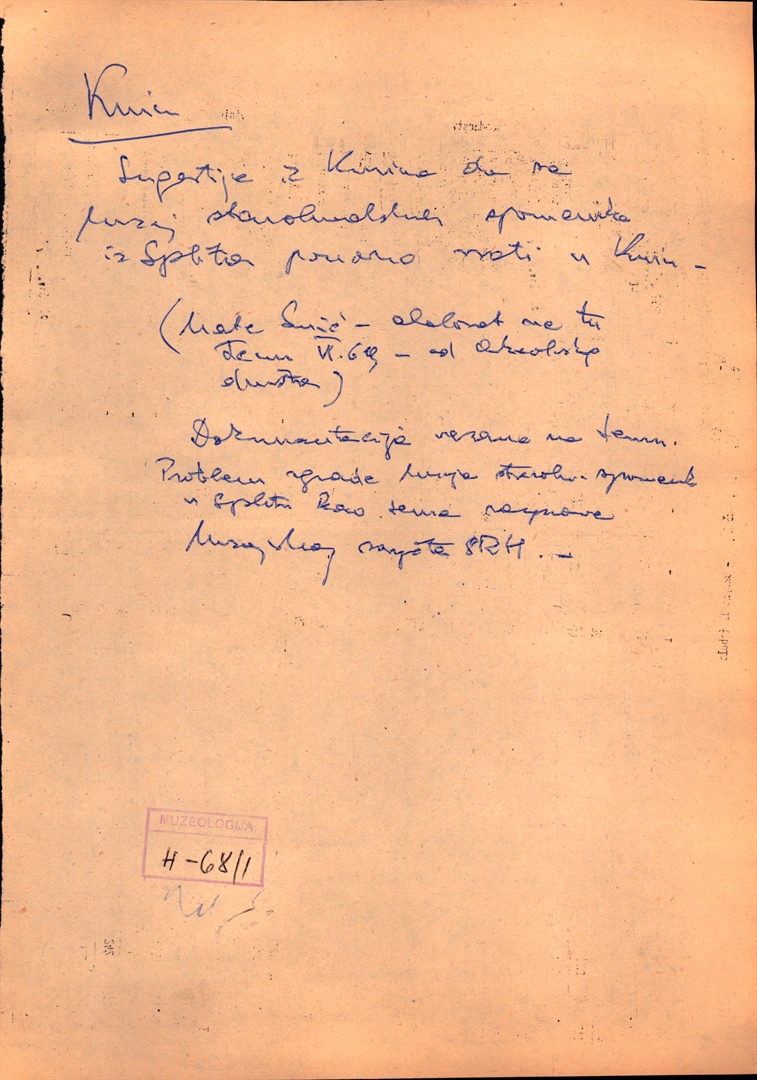 Knin
Sugestije iz Knina da se
Muzej starohrvatskih spomenika
iz Splita ponovno vrati u Knin –
(Mate Suić – elaborat na tu
temu VI.69 – od Arheološkog
društva)
Dokumentacija vezana na temu.
Problem zgrade Muzeja starohr. spomenik
u Splitu kao tema razgovora
Muzejskog savjeta SRH. –
MUZEOLOGIJA
H-68/1